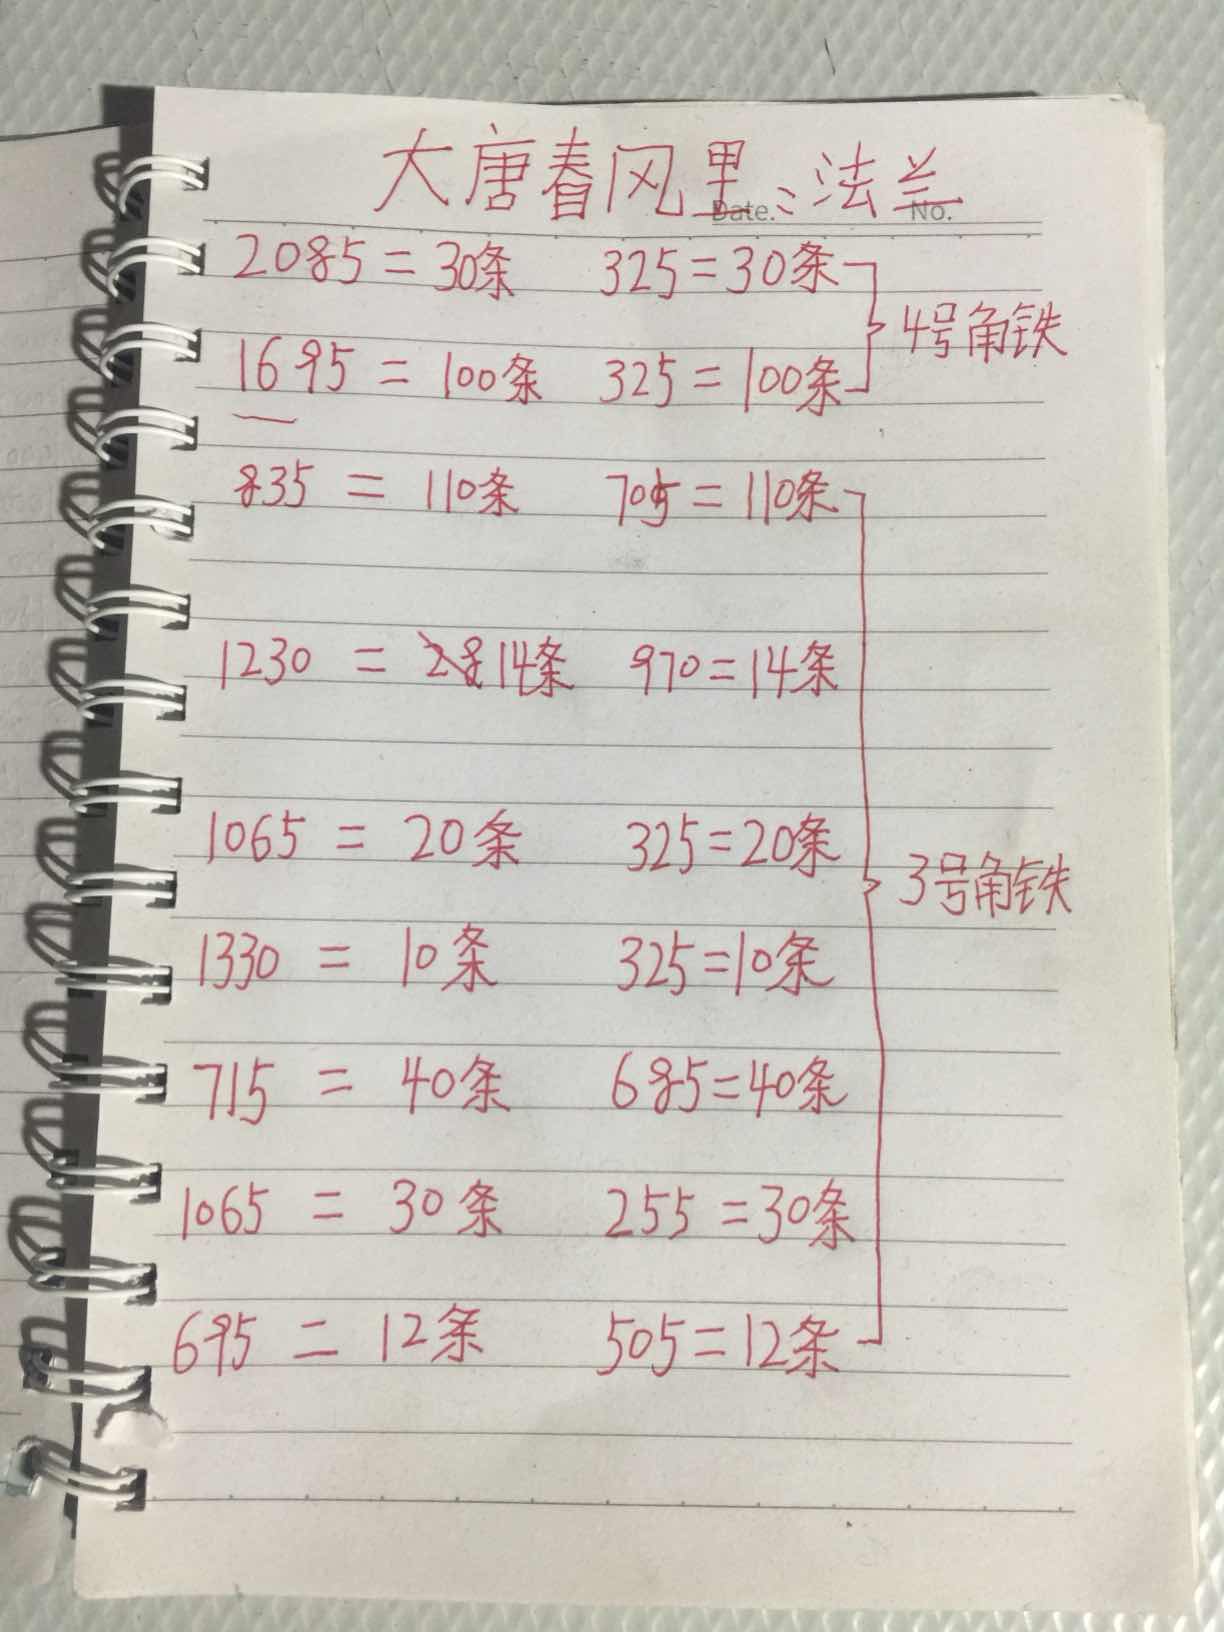 大唐春风里：法兰
Date. No.
2085 = 30条 325 = 30条
4号角铁
1695 = 100条 325 = 100条
835 = 110条 705 = 110条
1230 = 28 14条 970 = 14条
1065 = 20条 325 = 20条
3号角铁
1330 = 10条 325 = 10条
715 = 40条 685 = 40条
1065 = 30条 255 = 30条
695 = 12条 505 = 12条